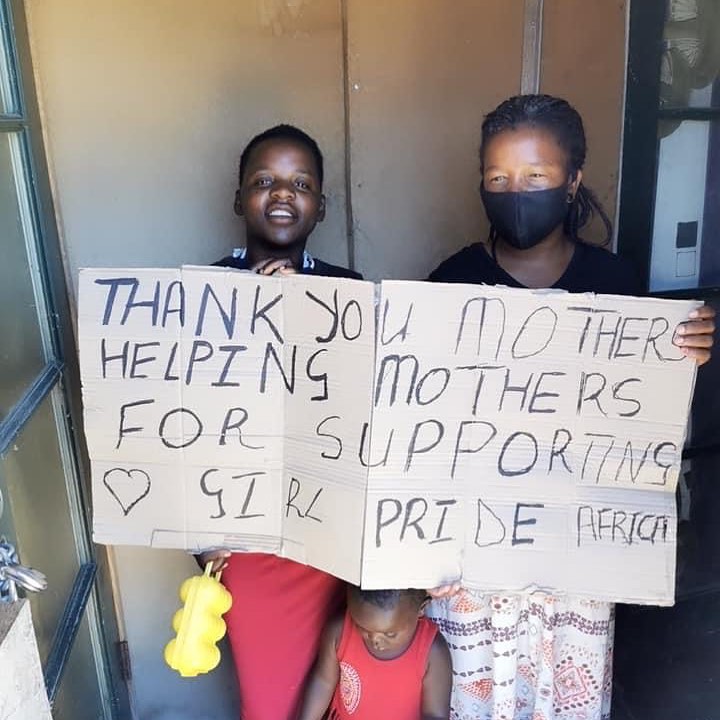 THANK YOU MOTHERS
HELPING MOTHERS
FOR SUPPORTING
♡ GIRL PRIDE AFRICA